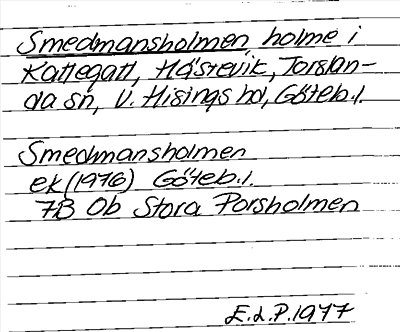 Smedmansholmen, holme i
Kattegatt, Hästevik, Torslan-
da sn, V. Hisings hd, Göteb.l.
Smedmansholmen
ek (1976) Göteb.l.
7B 0b Stora Porsholmen
E.L.P. 1977